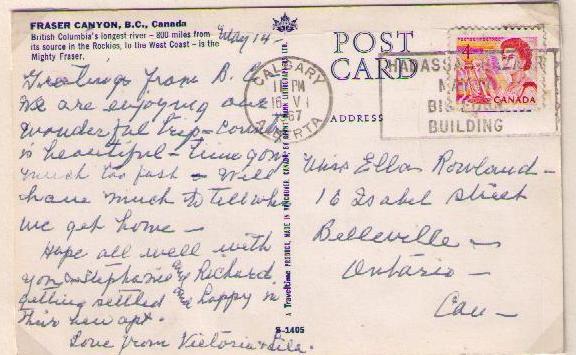 FRASER CANYON, B.C., Canada
British Columbia's longest river – 800 miles from
its source in the Rockies, to the West Coast – is the
Mighty Fraser.
May 14 –
Greetings from B.C.
We are enjoying our
wonderful trip – country
is beautiful – time going
much too fast – Will
have much to tell when
we get home –
Hope all well with
you – Stephanie and Richard
getting settled and happy in
their new apt.
Love from Victoria & Lila.
A Traveltime PRODUCT, MADE IN VANCOUVER, CANADA, BY
POST
CARD
ADDRESS
CALGARY
PM
16 VI
67
ALBERTA
HADASSAH
BUILDING
4
CANADA
Miss Ella Rowland –
16 Isabel Street
Belleville –
Ontario –
Can –
S-1405